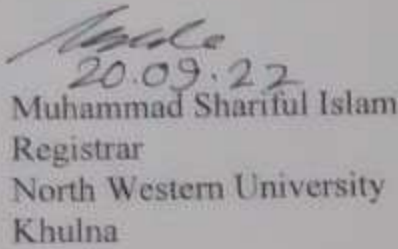 20.09.22
Muhammad Shariful Islam
Registrar
North Western University
Khulna